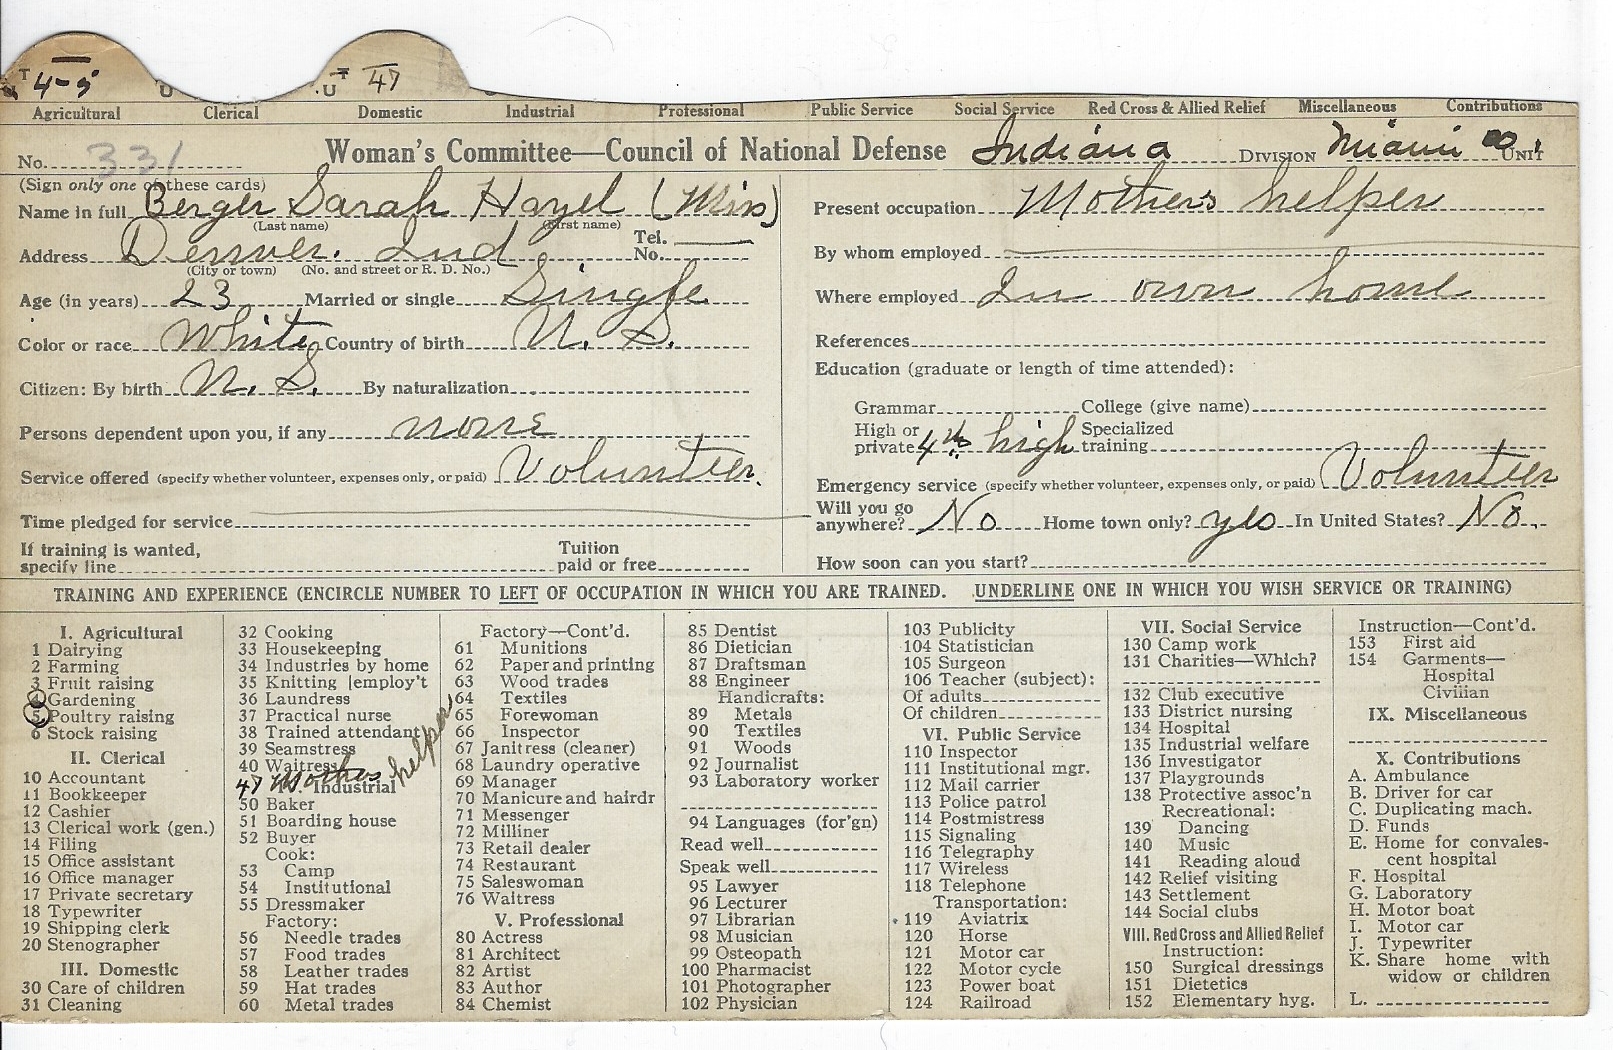 T 4-5 U U T 47
Agricultural Clerical Domestic Industrial Professional Public Service Social Service Red Cross & Allied Relief Miscellaneous Contributions
No. 331 Woman's Committee—Council of National Defense Indiana DIVISION Miami Co. UNIT
(Sign only one of these cards)
Name in full Berger Sarah Hazel (Miss)
(Last name) (First name)
Address Denver. Ind Tel. No.
(City or town) (No. and street or R. D. No.)
Age (in years) 23 Married or single Single
Color or race White Country of birth U. S.
Citizen: By birth U. S. By naturalization
Persons dependent upon you, if any none
Service offered (specify whether volunteer, expenses only, or paid) Volunteer.
Time pledged for service
If training is wanted, specify line Tuition paid or free
Present occupation Mothers helper
By whom employed
Where employed In own home
References
Education (graduate or length of time attended):
Grammar College (give name)
High or private 4th high Specialized training
Emergency service (specify whether volunteer, expenses only, or paid) Volunteer
Will you go anywhere? No Home town only? yes In United States? No.
How soon can you start?
TRAINING AND EXPERIENCE (ENCIRCLE NUMBER TO LEFT OF OCCUPATION IN WHICH YOU ARE TRAINED. UNDERLINE ONE IN WHICH YOU WISH SERVICE OR TRAINING)
I. Agricultural
1 Dairying
2 Farming
3 Fruit raising
4 Gardening
5 Poultry raising
6 Stock raising
II. Clerical
10 Accountant
11 Bookkeeper
12 Cashier
13 Clerical work (gen.)
14 Filing
15 Office assistant
16 Office manager
17 Private secretary
18 Typewriter
19 Shipping clerk
20 Stenographer
III. Domestic
30 Care of children
31 Cleaning
32 Cooking
33 Housekeeping
34 Industries by home
35 Knitting [employ't
36 Laundress
37 Practical nurse
38 Trained attendant
39 Seamstress
40 Waitress
47 Mothers helper
IV. Industrial
50 Baker
51 Boarding house
52 Buyer
Cook:
53 Camp
54 Institutional
55 Dressmaker
Factory:
56 Needle trades
57 Food trades
58 Leather trades
59 Hat trades
60 Metal trades
Factory—Cont'd.
61 Munitions
62 Paper and printing
63 Wood trades
64 Textiles
65 Forewoman
66 Inspector
67 Janitress (cleaner)
68 Laundry operative
69 Manager
70 Manicure and hairdr
71 Messenger
72 Milliner
73 Retail dealer
74 Restaurant
75 Saleswoman
76 Waitress
V. Professional
80 Actress
81 Architect
82 Artist
83 Author
84 Chemist
85 Dentist
86 Dietician
87 Draftsman
88 Engineer
Handicrafts:
89 Metals
90 Textiles
91 Woods
92 Journalist
93 Laboratory worker
94 Languages (for'gn)
Read well
Speak well
95 Lawyer
96 Lecturer
97 Librarian
98 Musician
99 Osteopath
100 Pharmacist
101 Photographer
102 Physician
103 Publicity
104 Statistician
105 Surgeon
106 Teacher (subject):
Of adults
Of children
VI. Public Service
110 Inspector
111 Institutional mgr.
112 Mail carrier
113 Police patrol
114 Postmistress
115 Signaling
116 Telegraphy
117 Wireless
118 Telephone
Transportation:
119 Aviatrix
120 Horse
121 Motor car
122 Motor cycle
123 Power boat
124 Railroad
VII. Social Service
130 Camp work
131 Charities—Which?
132 Club executive
133 District nursing
134 Hospital
135 Industrial welfare
136 Investigator
137 Playgrounds
138 Protective assoc'n
Recreational:
139 Dancing
140 Music
141 Reading aloud
142 Relief visiting
143 Settlement
144 Social clubs
VIII. Red Cross and Allied Relief
Instruction:
150 Surgical dressings
151 Dietetics
152 Elementary hyg.
Instruction—Cont'd.
153 First aid
154 Garments—
Hospital
Civilian
IX. Miscellaneous
X. Contributions
A. Ambulance
B. Driver for car
C. Duplicating mach.
D. Funds
E. Home for convales-
cent hospital
F. Hospital
G. Laboratory
H. Motor boat
I. Motor car
J. Typewriter
K. Share home with
widow or children
L.